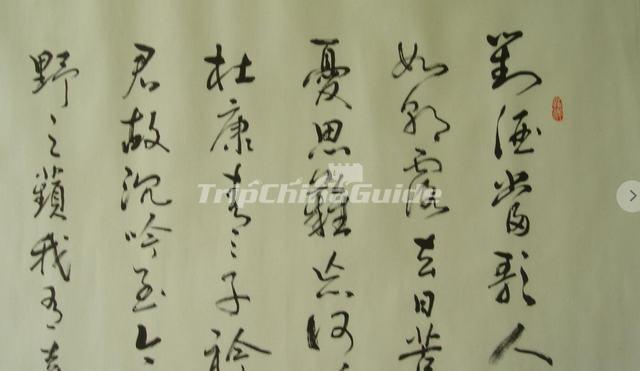 對酒當歌人
如朝露去日苦
憂思難忘何
杜康青々子衿
君故沉吟至今
野之蘋我有
TripChinaGuide